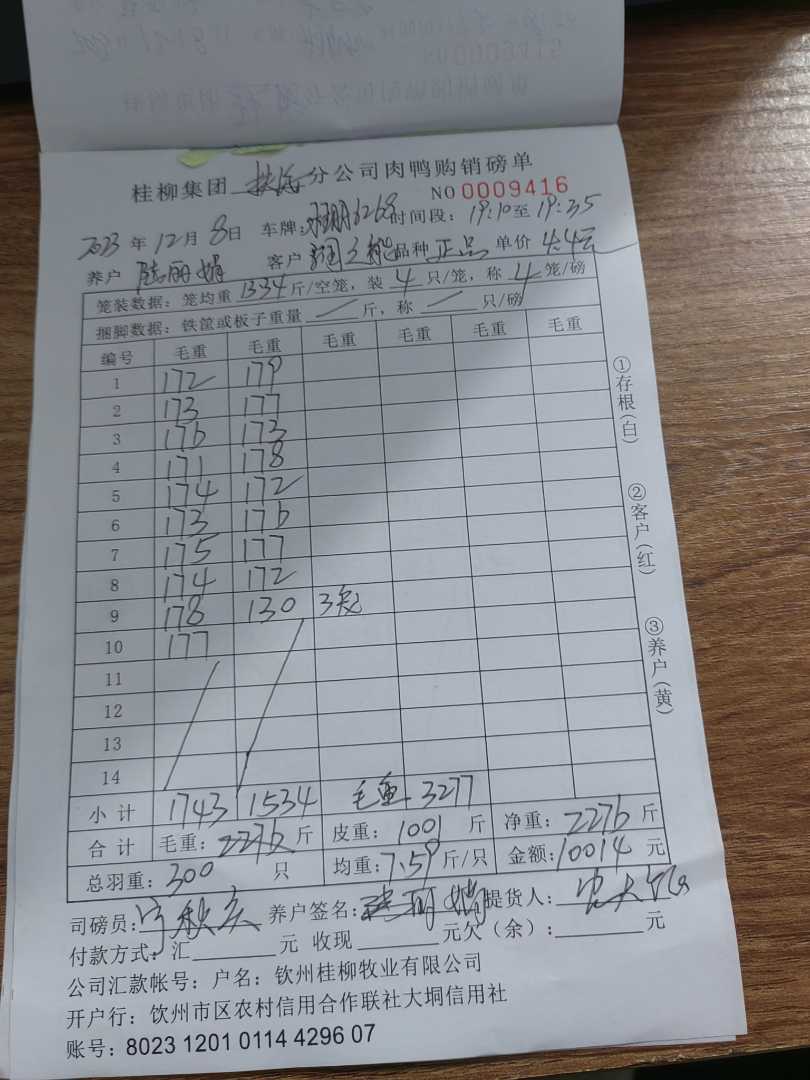 桂柳集团 分公司肉鸭购销磅单
NO 0009416
2023 年 12 月 8 日 车牌: 6268 时间段: 19:10 至 19:35
养户 陆丽娟 客户 品种 正品 单价 4.4元
笼装数据: 笼均重 13.34 斤/空笼, 装 4 只/笼, 称 4 笼/磅
捆脚数据: 铁筐或板子重量 / 斤, 称 / 只/磅
编号 毛重 毛重 毛重 毛重 毛重 毛重
1 172 179
2 173 177
3 176 173
4 171 178
5 174 172
6 173 176
7 175 177
8 174 172
9 178 130 3笼
10 177
11
12
13
14
小计 1743 1534 毛重 3277
合计 毛重: 2276 斤 皮重: 1001 斤 净重: 2276 斤
总羽重: 300 只 均重: 7.59 斤/只 金额: 10014 元
司磅员: 养户签名: 陆丽娟 提货人:
付款方式: 汇 元 收现 元欠(余): 元
公司汇款帐号: 户名: 钦州桂柳牧业有限公司
开户行: 钦州市区农村信用合作联社大垌信用社
账号: 8023 1201 0114 4296 07
①存根(白)
②客户(红)
③养户(黄)